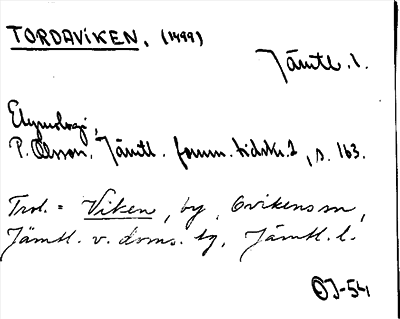 TORDAVIKEN. (1499)
Jämtl. l.
Etymologi,
P. Olsson. Jämtl. fornm. tidskr. 1, s. 163.
Trol. = Viken, by, Ovikens sn,
Jämtl. v. doms. tg, Jämtl. l.
OJ-54